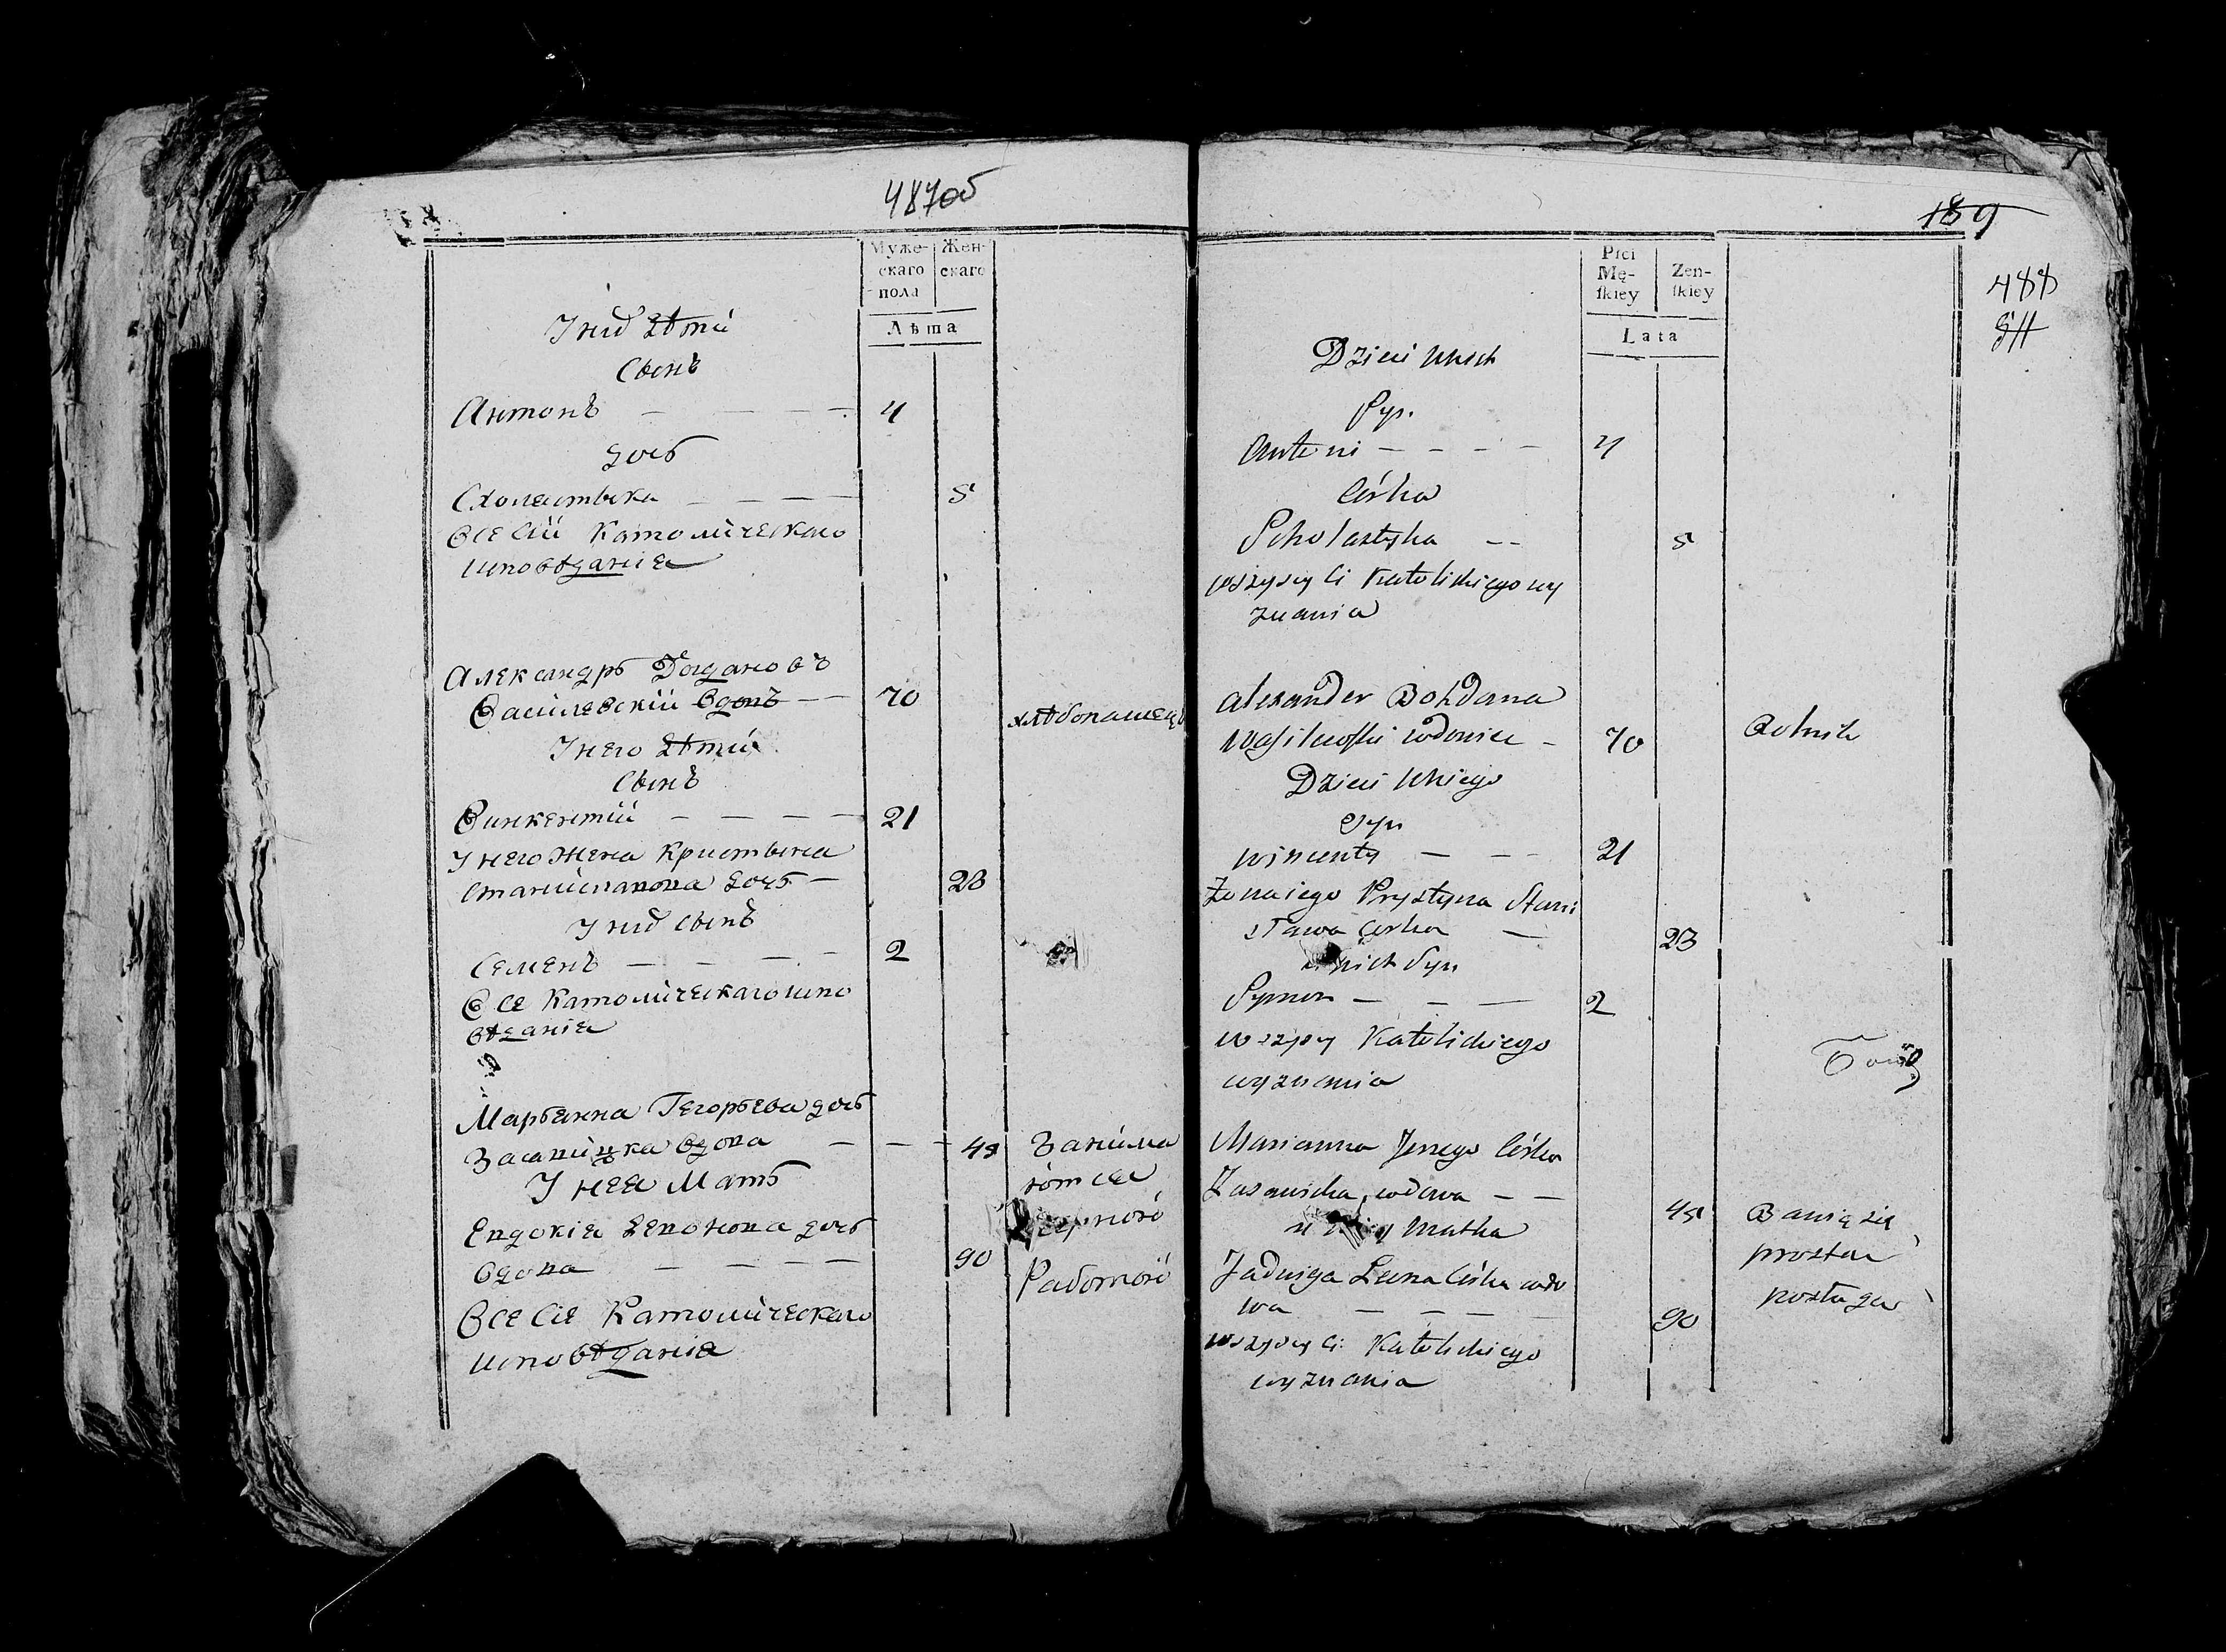 487об
Муже-
скаго
пола
Жен-
скаго
Лѣта
У нихъ дѣти
Сынъ
Антонъ — — — — 4
дочь
Схоластыка — — — — 5
Все сіи Католическаго
исповѣданія
Александръ Богдановъ
Василевскій вдовъ — 70 хлѣбопашецъ
У него дѣти
Сынъ
Винкентій — — — — 21
У него жена Кристына
Станиславова дочь — 23
У нихъ сынъ
Семенъ — — — — 2
Все Католическаго испо
вѣданія
Марьянна Гегорьева дочь
вдова — — — 45 Занима
У нея Мать ются
чорною
Евдокія Левонова дочь
вдова — — — — 90 Работою
Все сіе Католическаго
исповѣданія
189
488
Płci
Mę-
ſkiey
Zen-
ſkiey
Lata
Dzieci u nich
Syn.
Antoni — — — — 4
Córka
Scholastyka — — 5
wszyscy Ci Katolickiego wy
znania
Alexander Bohdana
Wasilewski wdowiec — 70 Rolnik
Dzieci u niego
Syn
Wincenty — — — 21
Żona iego Krystyna Stani
sława Córka — 23
u nich Syn
Symon — — — 2
wszyscy Katolickiego
wyznania
Marianna Jerzego Córka
wdowa — — 45 Bawią się
u niey Matka prostą
Jadwiga Leona Córka wdo posługą
wa — — — 90
wszyscy Ci Katolickiego
wyznania